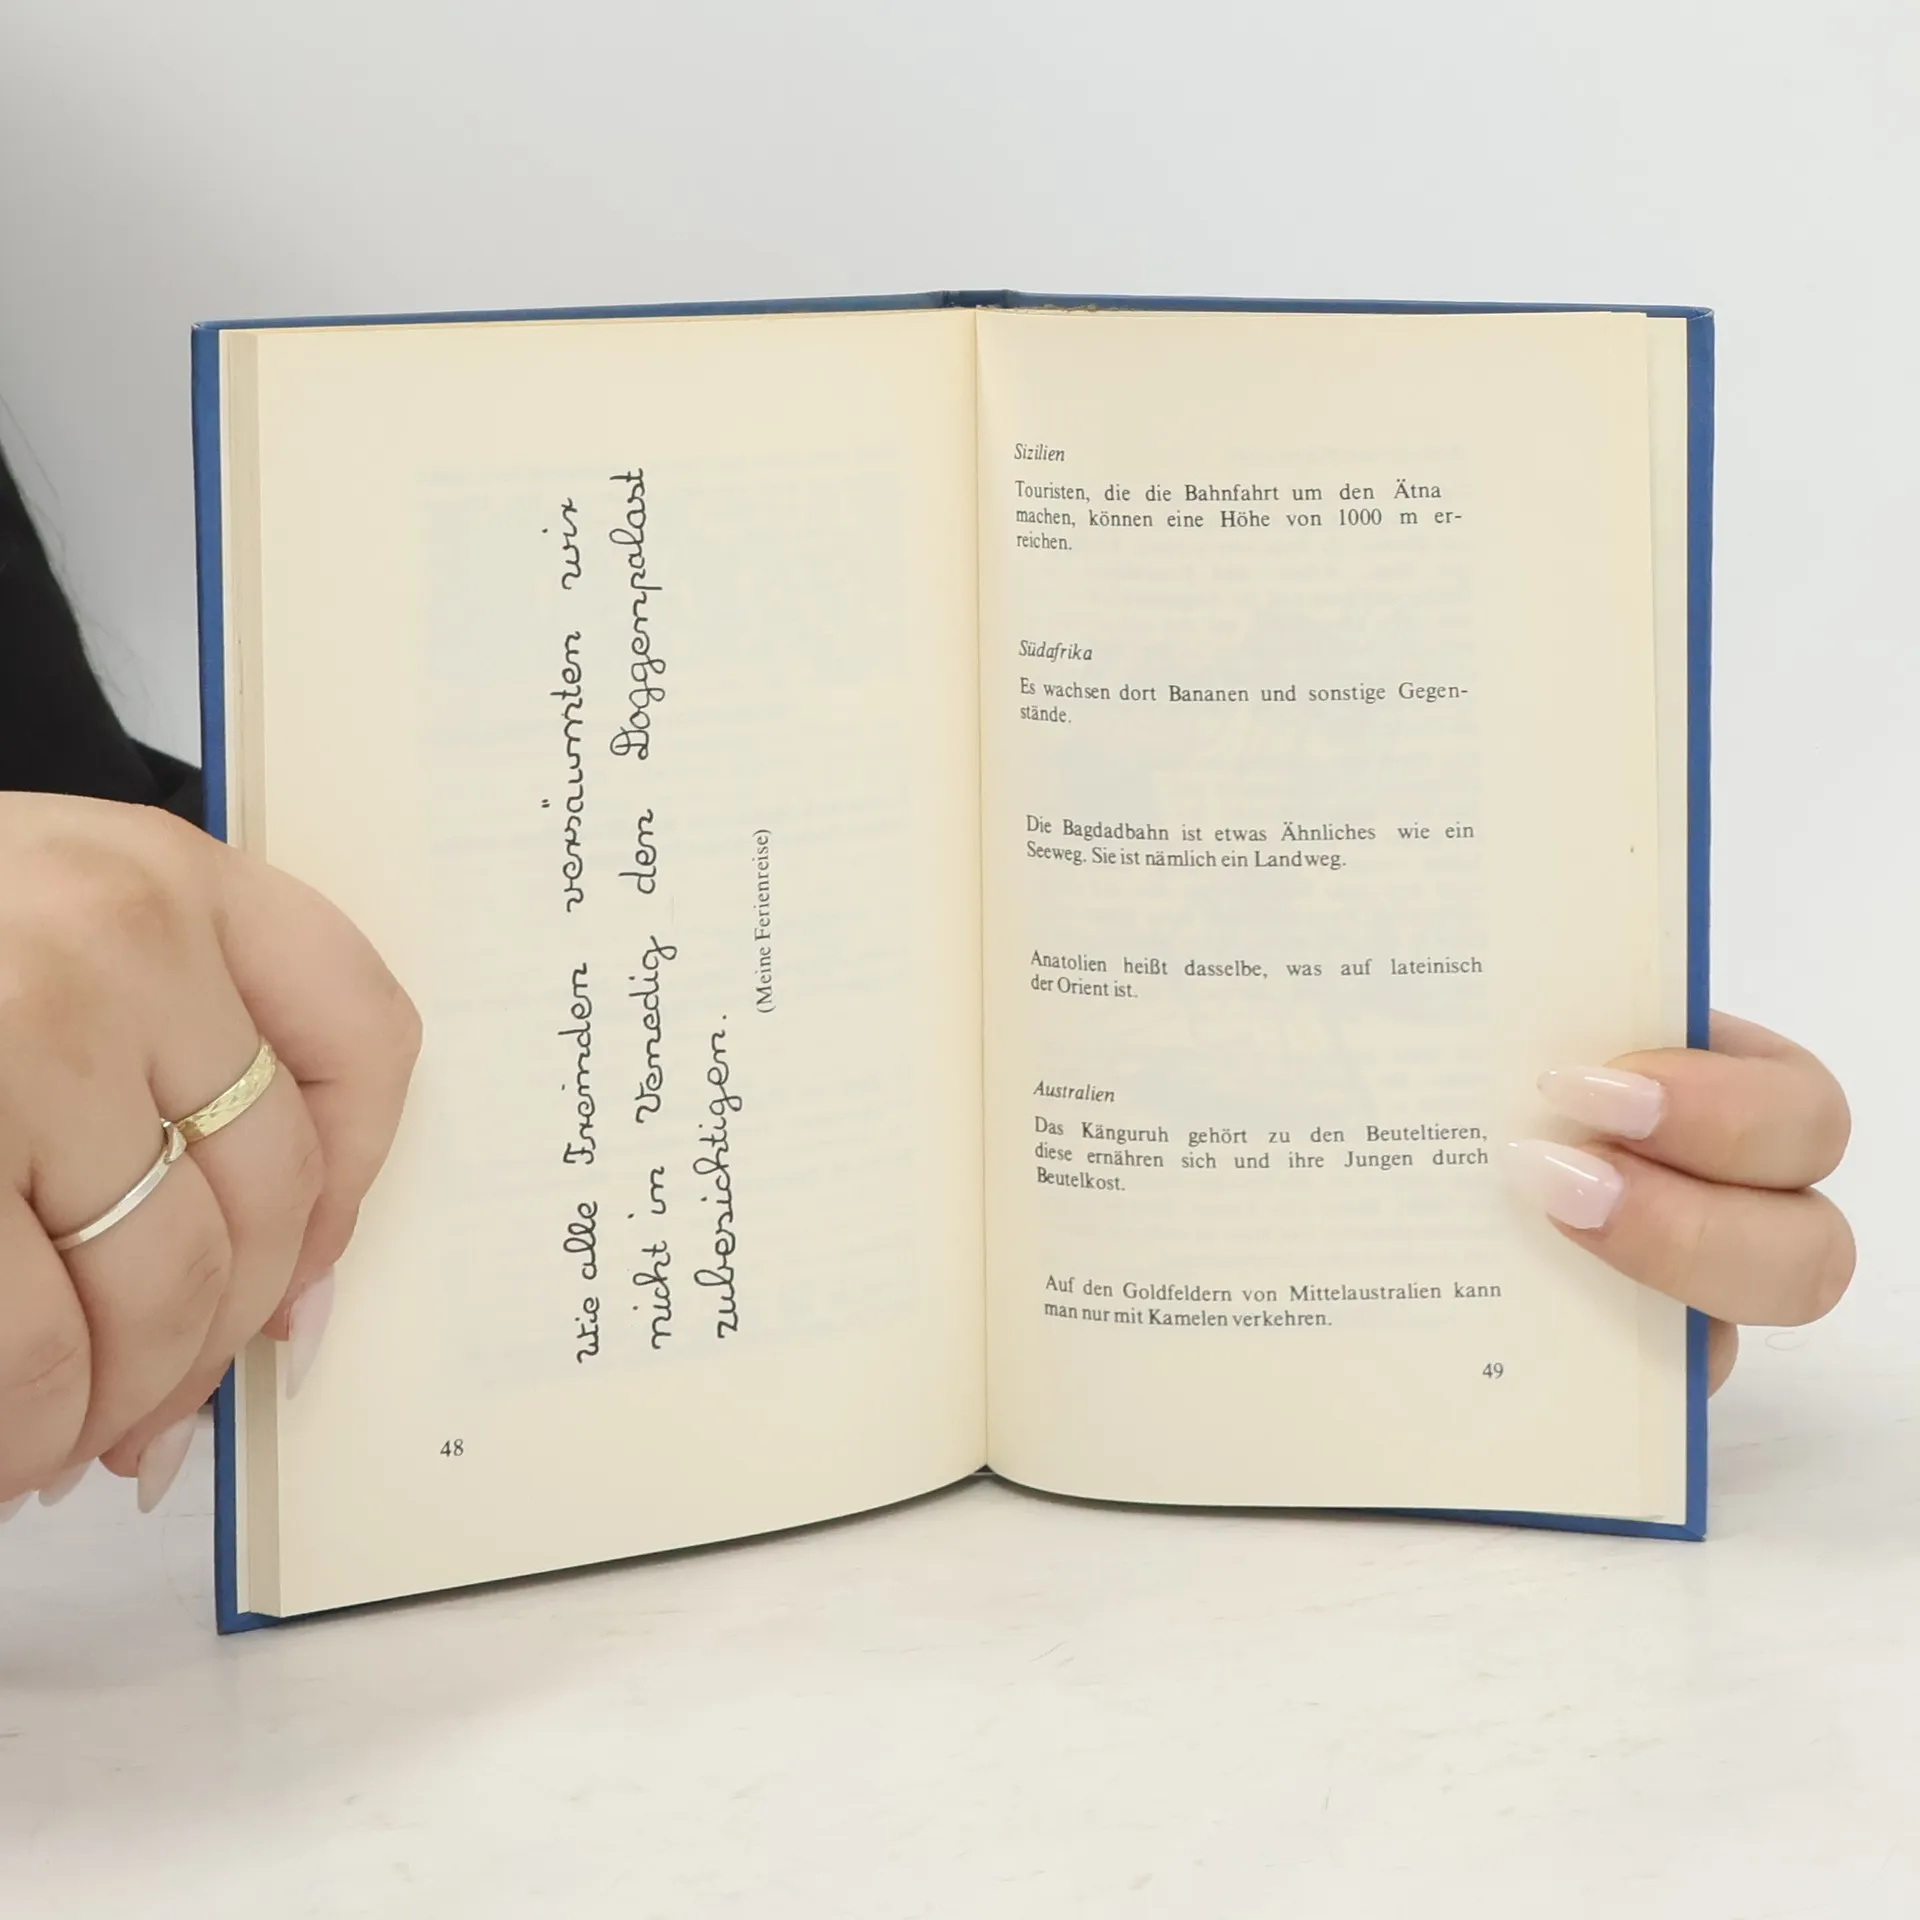 Wie alle Freinden versäumten wir
nicht in Venedig den Doggenpalast
zubersichtigen.
(Meine Ferienreise)
48
Sizilien
Touristen, die die Bahnfahrt um den Ätna
machen, können eine Höhe von 1000 m er-
reichen.
Südafrika
Es wachsen dort Bananen und sonstige Gegen-
stände.
Die Bagdadbahn ist etwas Ähnliches wie ein
Seeweg. Sie ist nämlich ein Landweg.
Anatolien heißt dasselbe, was auf lateinisch
der Orient ist.
Australien
Das Känguruh gehört zu den Beuteltieren,
diese ernähren sich und ihre Jungen durch
Beutelkost.
Auf den Goldfeldern von Mittelaustralien kann
man nur mit Kamelen verkehren.
49